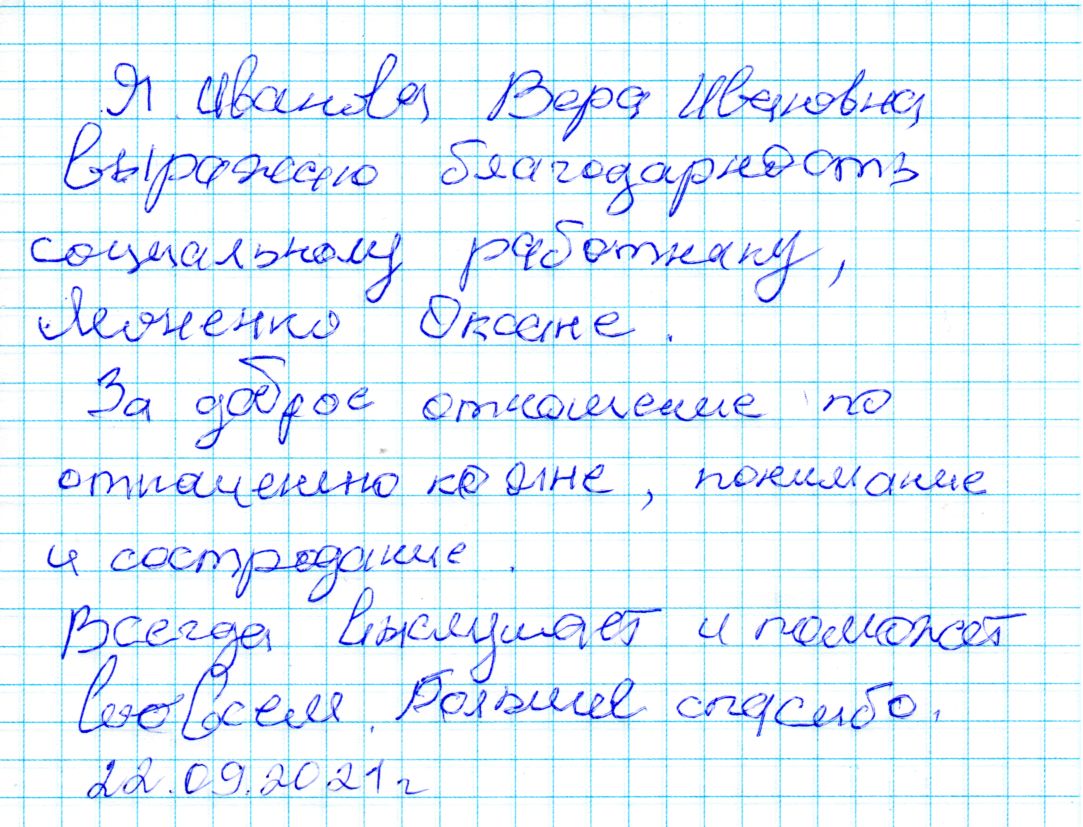 Я Иванова Вера Ивановна
выражаю благодарность
социальному работнику,
Оксане.
За доброе отношение по
отношению ко мне, понимание
и сострадание.
Всегда выслушает и поможет
во всем. Большое спасибо.
22.09.2021г